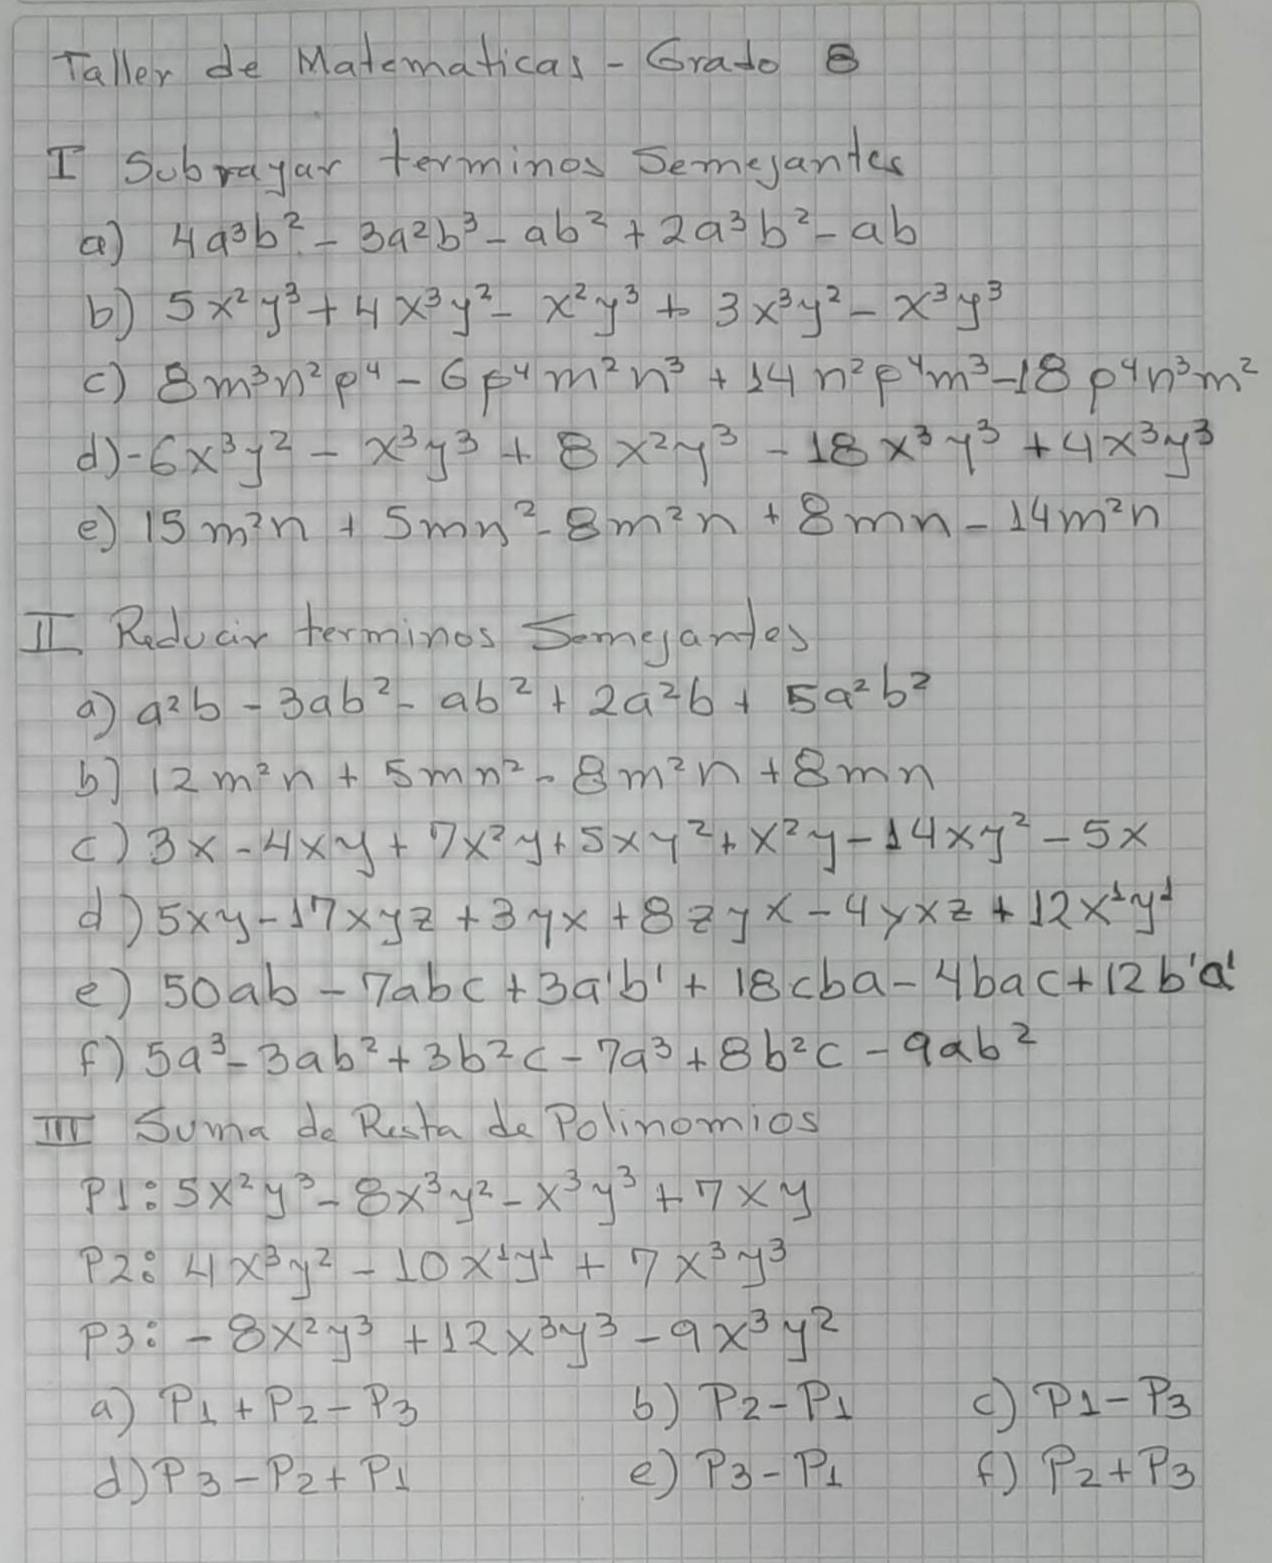 Taller de Matematicas - Grado 8
I Subrayar terminos Semejantes
a) 4a³b² - 3a²b³ - ab² + 2a³b² - ab
b) 5x²y³ + 4x³y² - x²y³ + 3x³y² - x³y³
c) 8m³n²p⁴ - 6p⁴m²n³ + 14n²p⁴m³ - 18p⁴n³m²
d) -6x³y² - x³y³ + 8x²y³ - 18x³y³ + 4x³y³
e) 15m²n + 5mn² - 8m²n + 8mn - 14m²n
II Reducir terminos Semejantes
a) a²b - 3ab² - ab² + 2a²b + 5a²b²
b) 12m²n + 5mn² - 8m²n + 8mn
c) 3x - 4xy + 7x²y + 5xy² + x²y - 14xy² - 5x
d) 5xy - 17xyz + 3yx + 8zyx - 4yxz + 12x¹y¹
e) 50ab - 7abc + 3a¹b¹ + 18cba - 4bac + 12b¹a¹
f) 5a³ - 3ab² + 3b²c - 7a³ + 8b²c - 9ab²
III Suma de Resta de Polinomios
P1: 5x²y³ - 8x³y² - x³y³ + 7xy
P2: 4x³y² - 10x¹y¹ + 7x³y³
P3: - 8x²y³ + 12x³y³ - 9x³y²
a) P₁ + P₂ - P₃ b) P₂ - P₁ c) P₁ - P₃
d) P₃ - P₂ + P₁ e) P₃ - P₁ f) P₂ + P₃